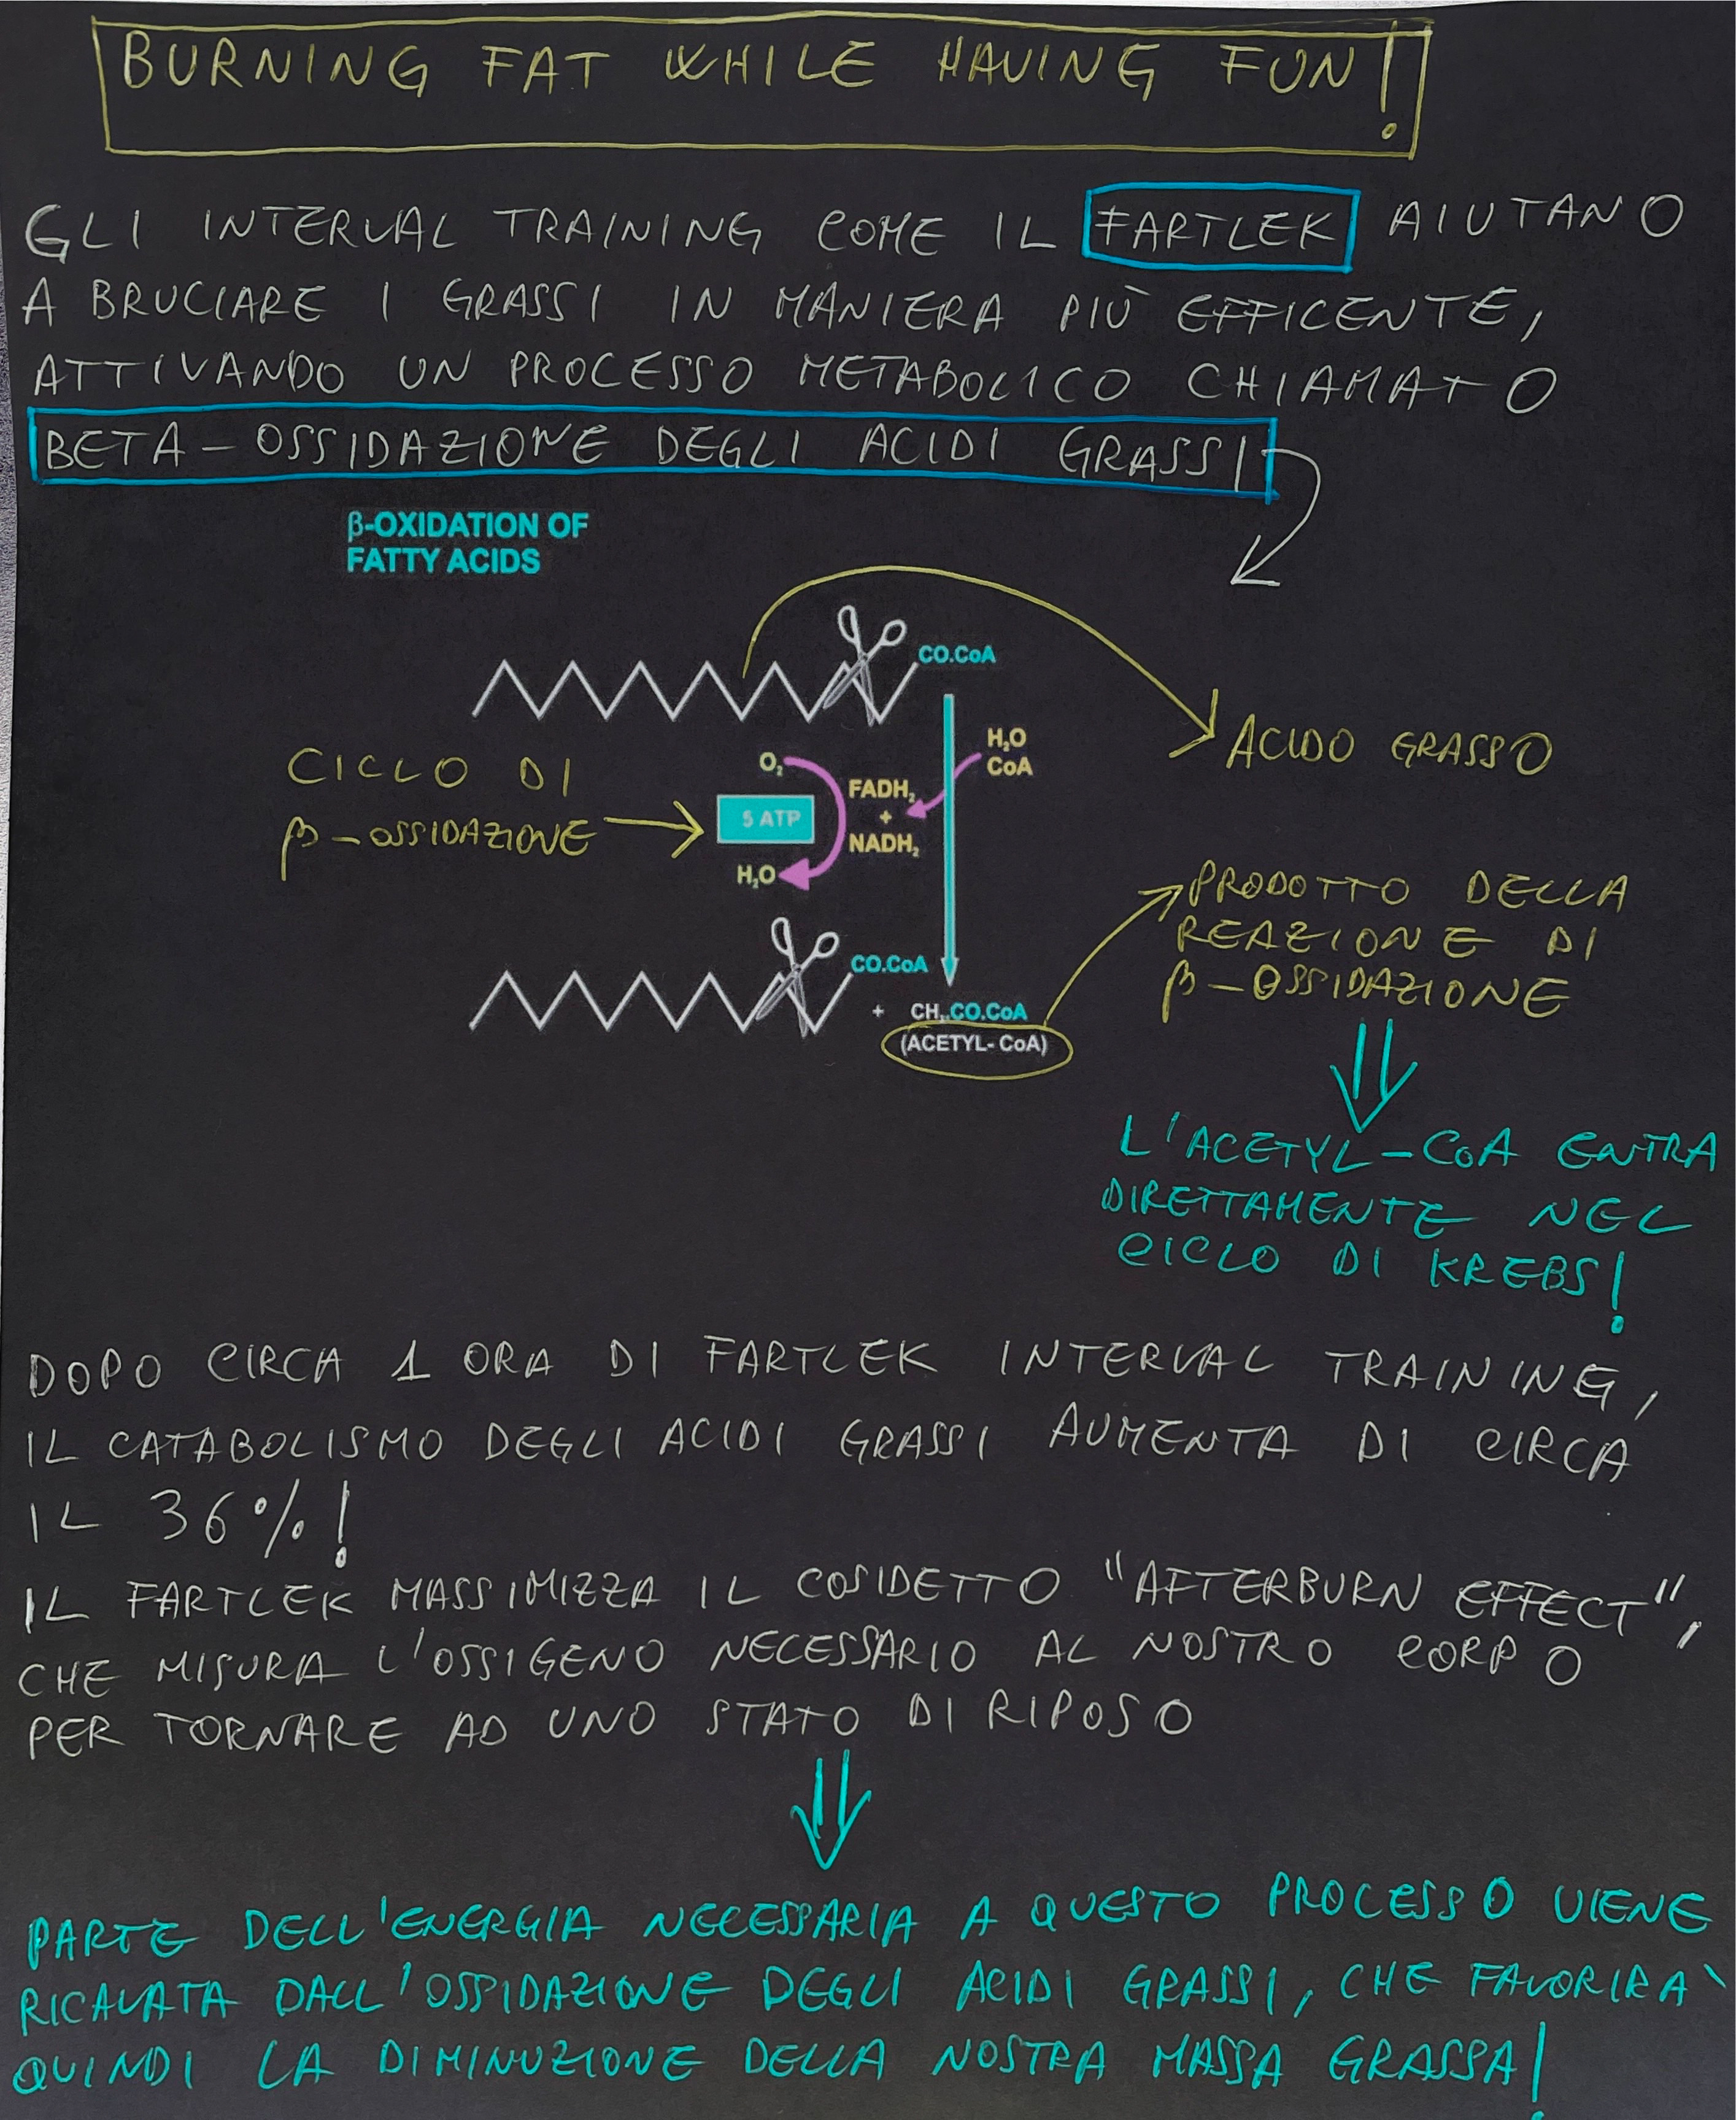 BURNING FAT WHILE HAVING FUN!
GLI INTERVAL TRAINING COME IL FARTLEK AIUTANO
A BRUCIARE I GRASSI IN MANIERA PIÙ EFFICENTE,
ATTIVANDO UN PROCESSO METABOLICO CHIAMATO
BETA-OSSIDAZIONE DEGLI ACIDI GRASSI
β-OXIDATION OF
FATTY ACIDS
CO.CoA
ACIDO GRASSO
H₂O
CoA
CICLO DI
β-OSSIDAZIONE
O₂
FADH₂
+
NADH₂
5 ATP
H₂O
PRODOTTO DELLA
REAZIONE DI
β-OSSIDAZIONE
CO.CoA
+ CH₃.CO.CoA
(ACETYL-CoA)
L'ACETYL-CoA ENTRA
DIRETTAMENTE NEL
CICLO DI KREBS!
DOPO CIRCA 1 ORA DI FARTLEK INTERVAL TRAINING,
IL CATABOLISMO DEGLI ACIDI GRASSI AUMENTA DI CIRCA
IL 36%!
IL FARTLEK MASSIMIZZA IL COSIDETTO "AFTERBURN EFFECT",
CHE MISURA L'OSSIGENO NECESSARIO AL NOSTRO CORPO
PER TORNARE AD UNO STATO DI RIPOSO
PARTE DELL'ENERGIA NECESSARIA A QUESTO PROCESSO VIENE
RICAVATA DALL'OSSIDAZIONE DEGLI ACIDI GRASSI, CHE FAVORIRA'
QUINDI LA DIMINUZIONE DELLA NOSTRA MASSA GRASSA!